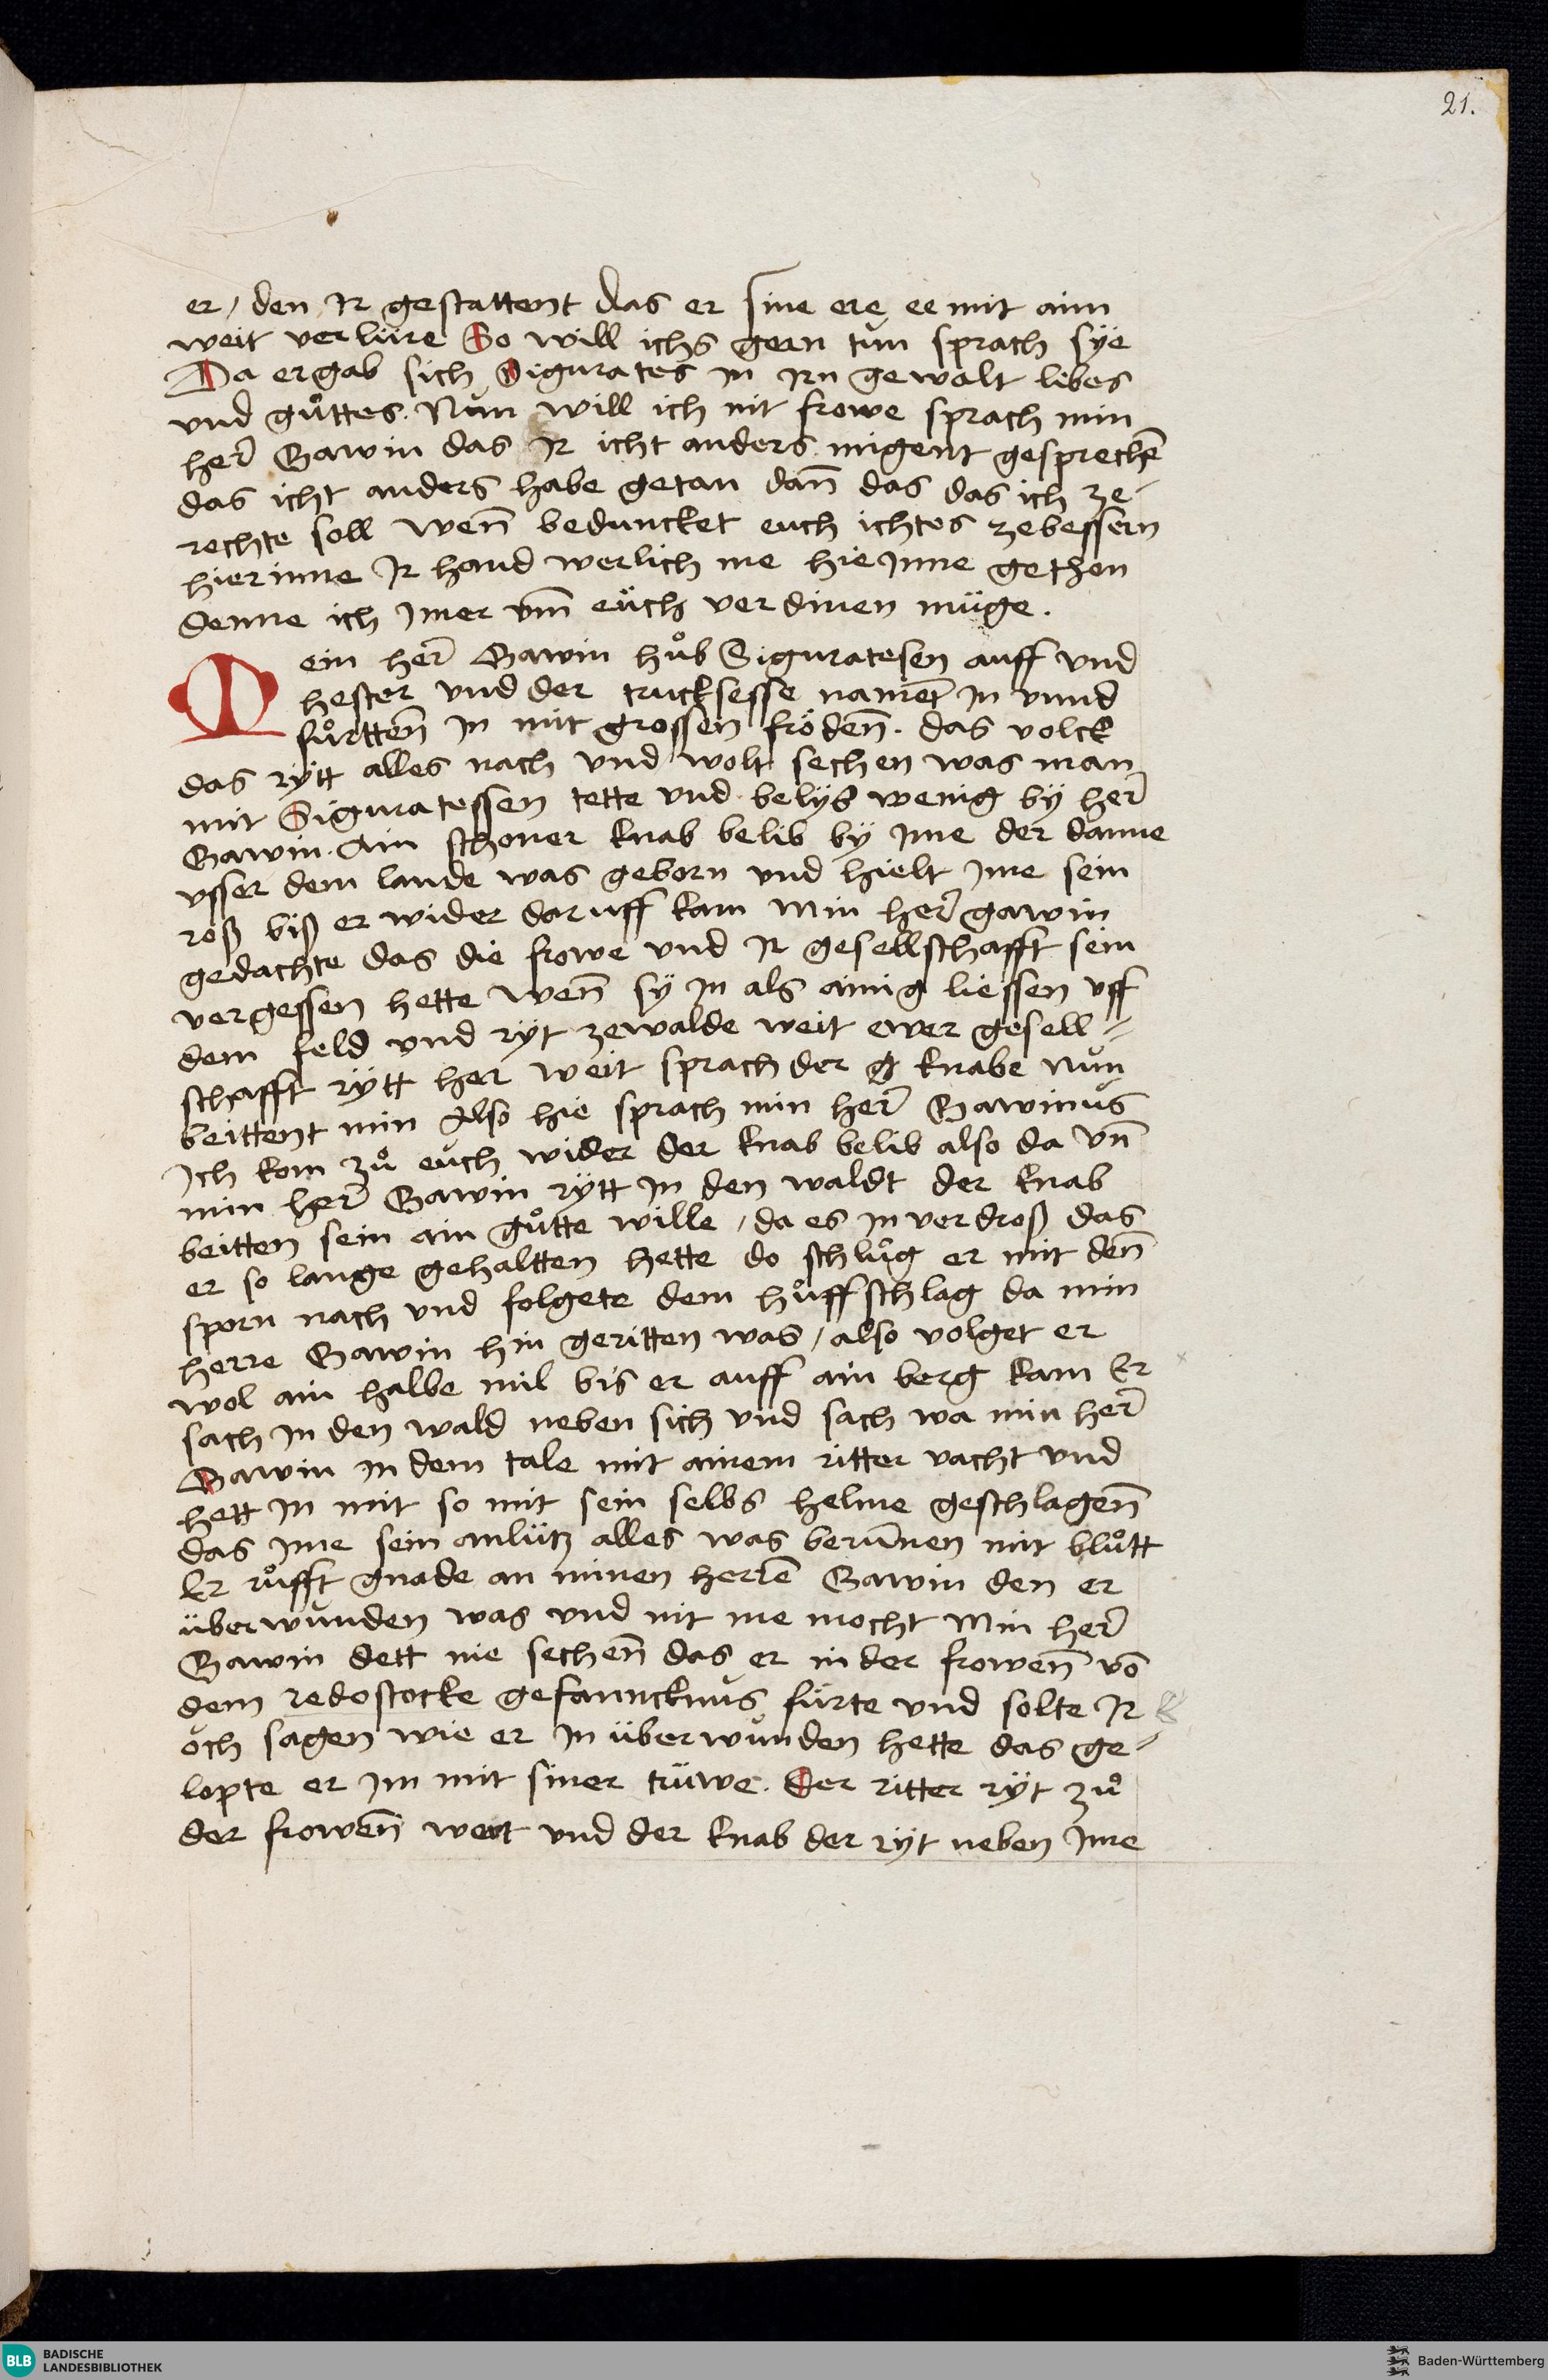 21.
er / den Ir gestattent das er sine ere ee mit aim
weit verlüre So will ichs gern tun sprach sÿe
Da ergab sich Sigurates in Irn gewalt libes
vnd gůttes. Nŭn will ich nit frowe sprach min
her̄ Gawin das Ir icht anders migent gesprechē
das icht anders habe getan dan̄ das das ich ze-
rechte soll wen̄ beduncket euch ichtes zebessern
hierinne Ir hand werlich me hie Inne gethen
denne ich Imer vm̄ eüch verdinen müge.
Mein her̄ Gawin hůb Siguratesen auff vnd
hester vnd der trucksesse namet̄ in vnnd
fůrtten̄ in mit grossen fröden̄. das volck
das rÿtt alles nach vnd wolt sechen was man
mit Siguratessen tette vnd belÿb wenig bÿ her̄
Gawin. Ain schoner knab belib bÿ Ime der danne
vsser dem lande was geborn vnd hielt Ime sein
roß biß er wider daruff kam Min her̄ gawin
gedachte das die frowe vnd Ir gesellschafft sein
vergessen hette wen̄ sÿ in als ainig liessen vff
dem feld vnd rÿt zewalde weit ewer gesell-
schafft rÿtt her weit sprach der g knabe Nŭn
beittent min Also hie sprach min her̄ Gawinus
Ich kom zů eŭch wider der knab belib also da vn̄
min her̄ Gawin rÿtt in den waldt der knab
beitten sein ain gůtte wille / da es in verdroß das
er so lange gehaltten hette do schlůg er mit den̄
sporn nach vnd folgete dem hůffschlag da min
herre Gawin hin geritten was / also volget er
wol ain halbe mil bis er auff ain berg kam Er
sach in den wald neben sich vnd sach wa min her̄
Gawin in dem tale mit ainem ritter vacht vnd
hett in mit so mit sein selbs helme geschlagen̄
das Ime sein anlütz alles was berūnen mit blůtt
Er růfft gnade an minen herrē Gawin den er
überwŭnden was vnd nit me mocht Min her̄
Gawin dett nie sechen̄ das er in der frowen̄ vō
dem redostocke gefanncknŭs fürte vnd solte Ir
och sagen wie er in überwŭnden hette das ge-
lopte er im mit siner trüwe. Der ritter rÿt zů
der frowen̄ wert vnd der knab der rÿt neben Ime
BLB
BADISCHE
LANDESBIBLIOTHEK
Baden-Württemberg